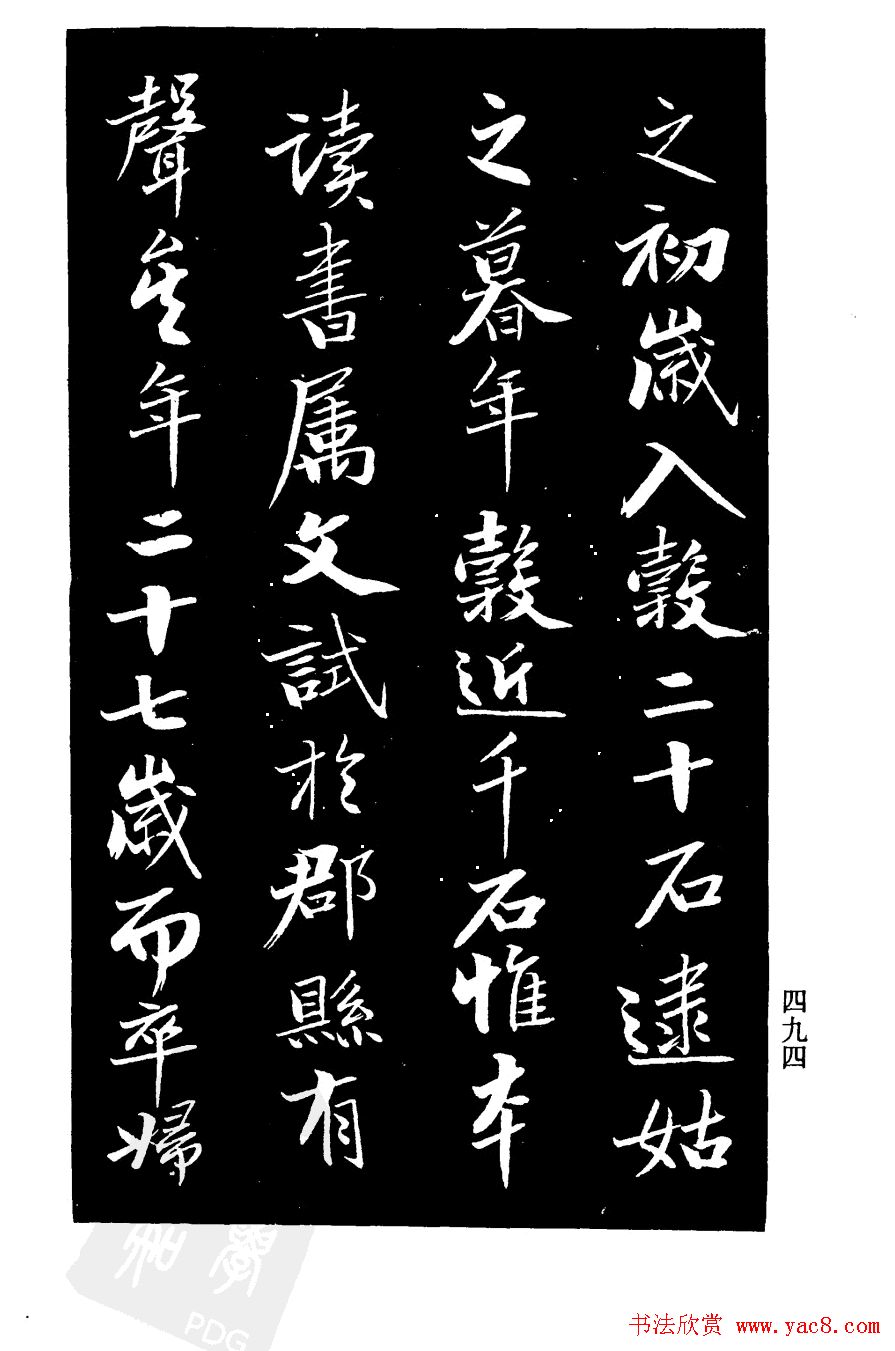 之初歲入穀二十石逮姑
之暮年穀近千石惟本
讀書属文試於郡縣有
聲年二十七歲而卒婦
四九四
PDG
书法欣赏 www.yac8.com